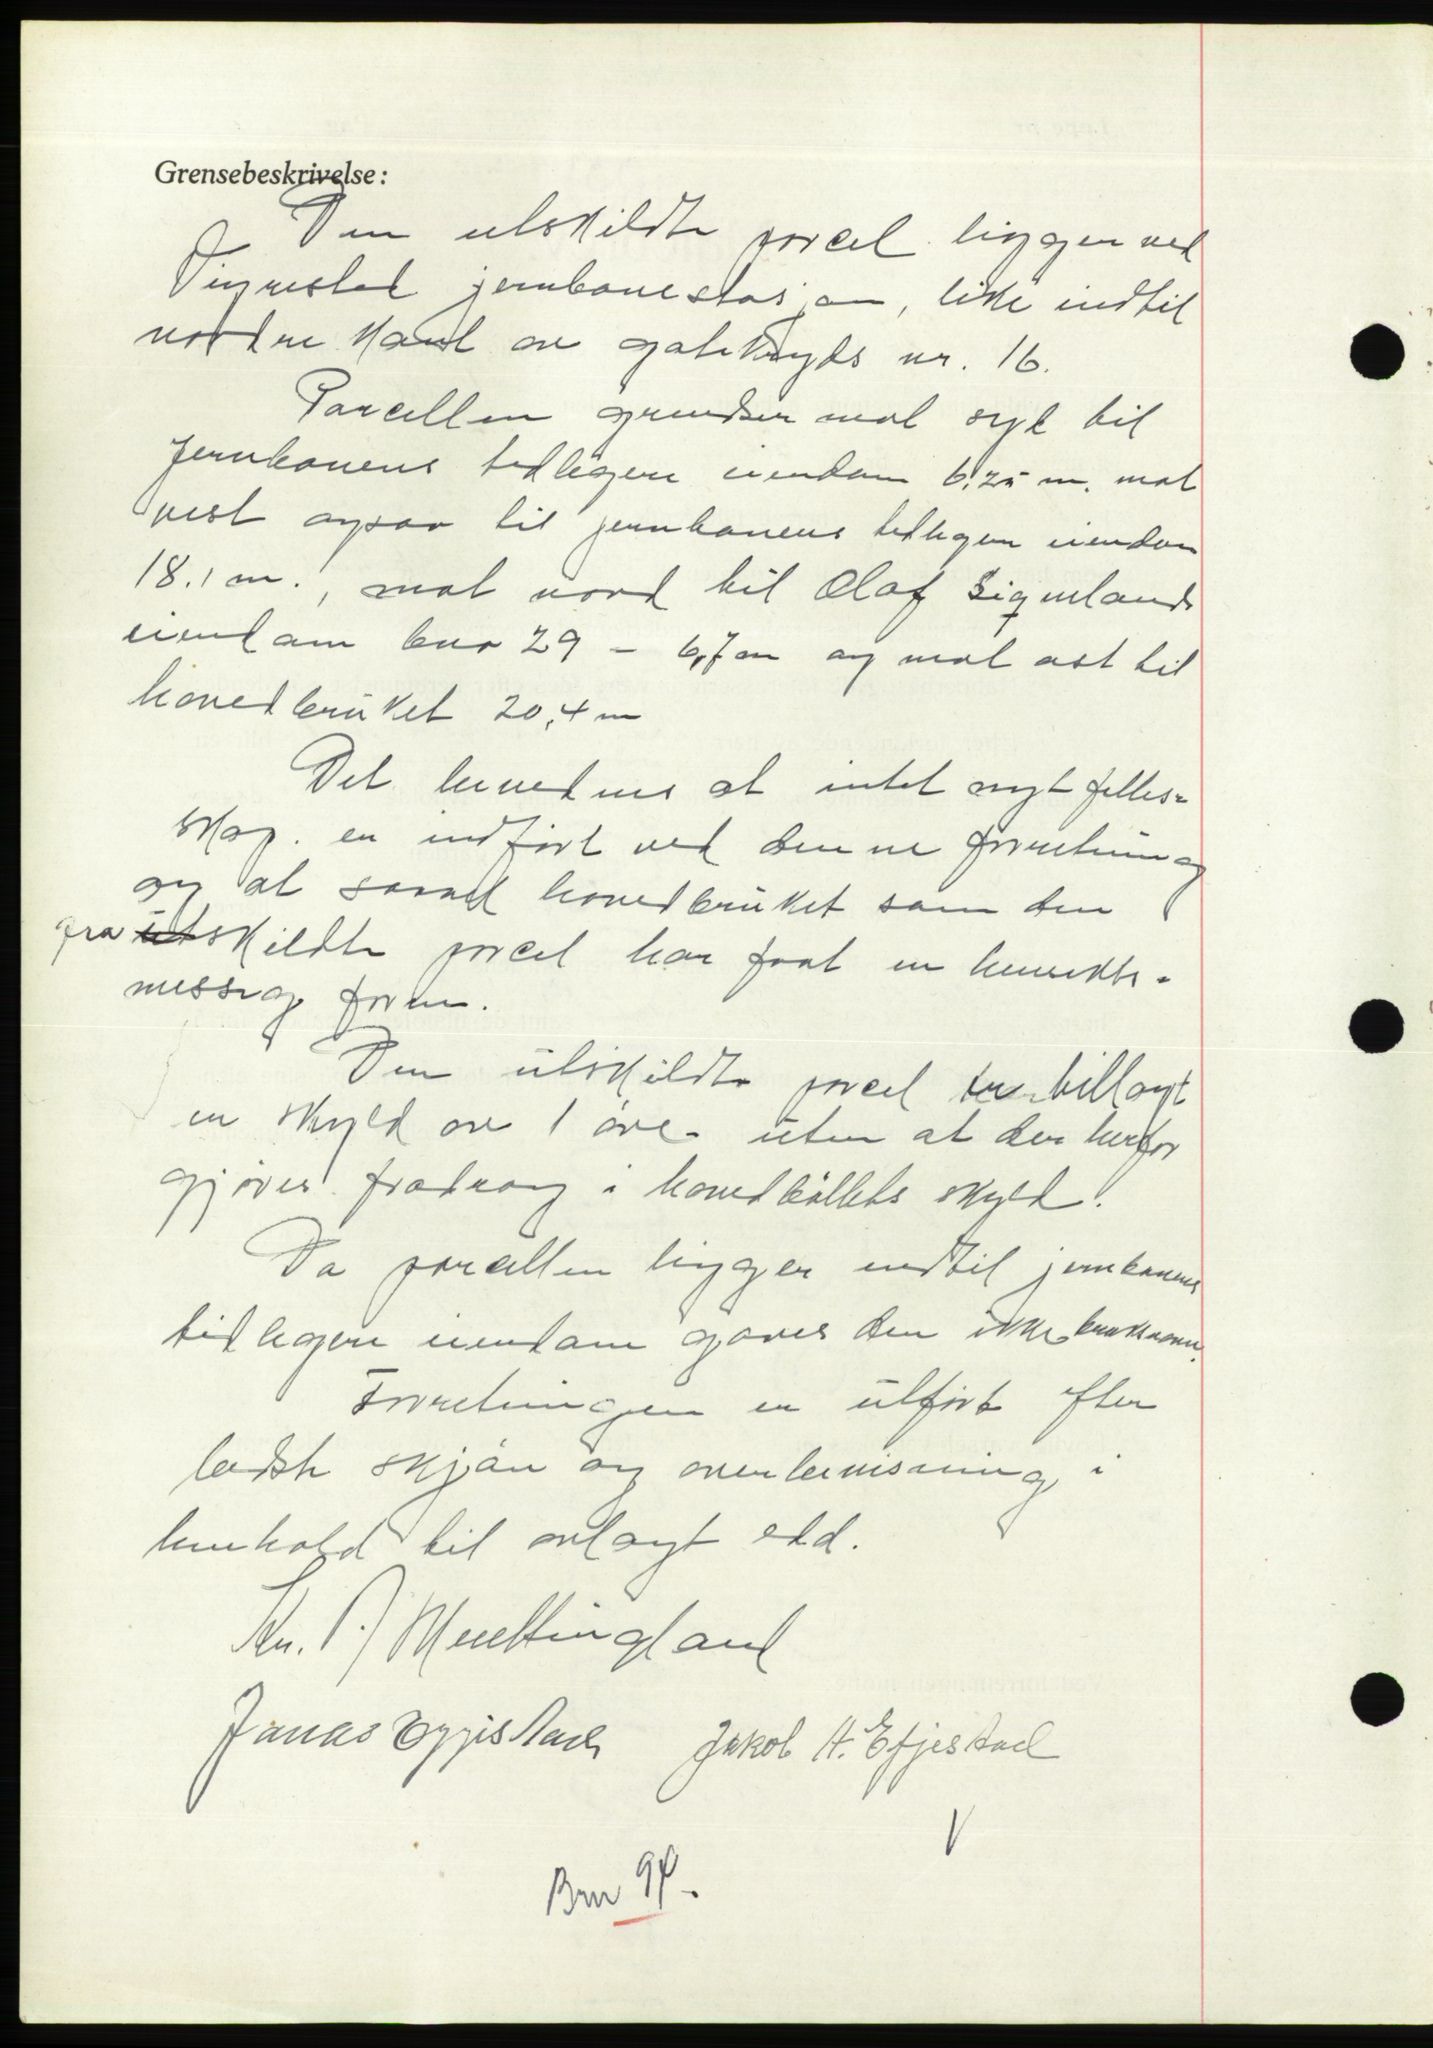 Grensebeskrivelse:
Den utskildte parcel ligger ved
Vigrestad jernbanestasjon, like indtil
nordre kant av gatekryds nr. 16.
Parcellen grendser mot syd til
Jernbanens tidligere eiendom 6,25 m. mot
vest ogsaa til jernbanens tidligere eiendom
18.1 m., mot nord til Olaf Sigurlands
eiendom bno 29 - 6,7 m og mot ost til
hovedbruket 20,4 m
Det bevidnes at intet nyt felles-
skap. er indfört ved denne forretning
og at saavel hovedbruket som den
fra skildte parcel har faat en hensikts-
messig form.
Den utskildte parcel er tillagt
en skyld av 1 öre. uten at der herfor
gjöres fradrag i hovedböllets skyld.
Da parcellen ligger indtil jernbanens
tidligere eiendom gaves den ikke bruksnavn.
Forretningen er utfört efter
bedste skjön og overbevisning, i
henhold til avlagt ed.
Kn. P. Mellingland
Jonas Eggistad Jakob A. Efjestad
Bnr 94.